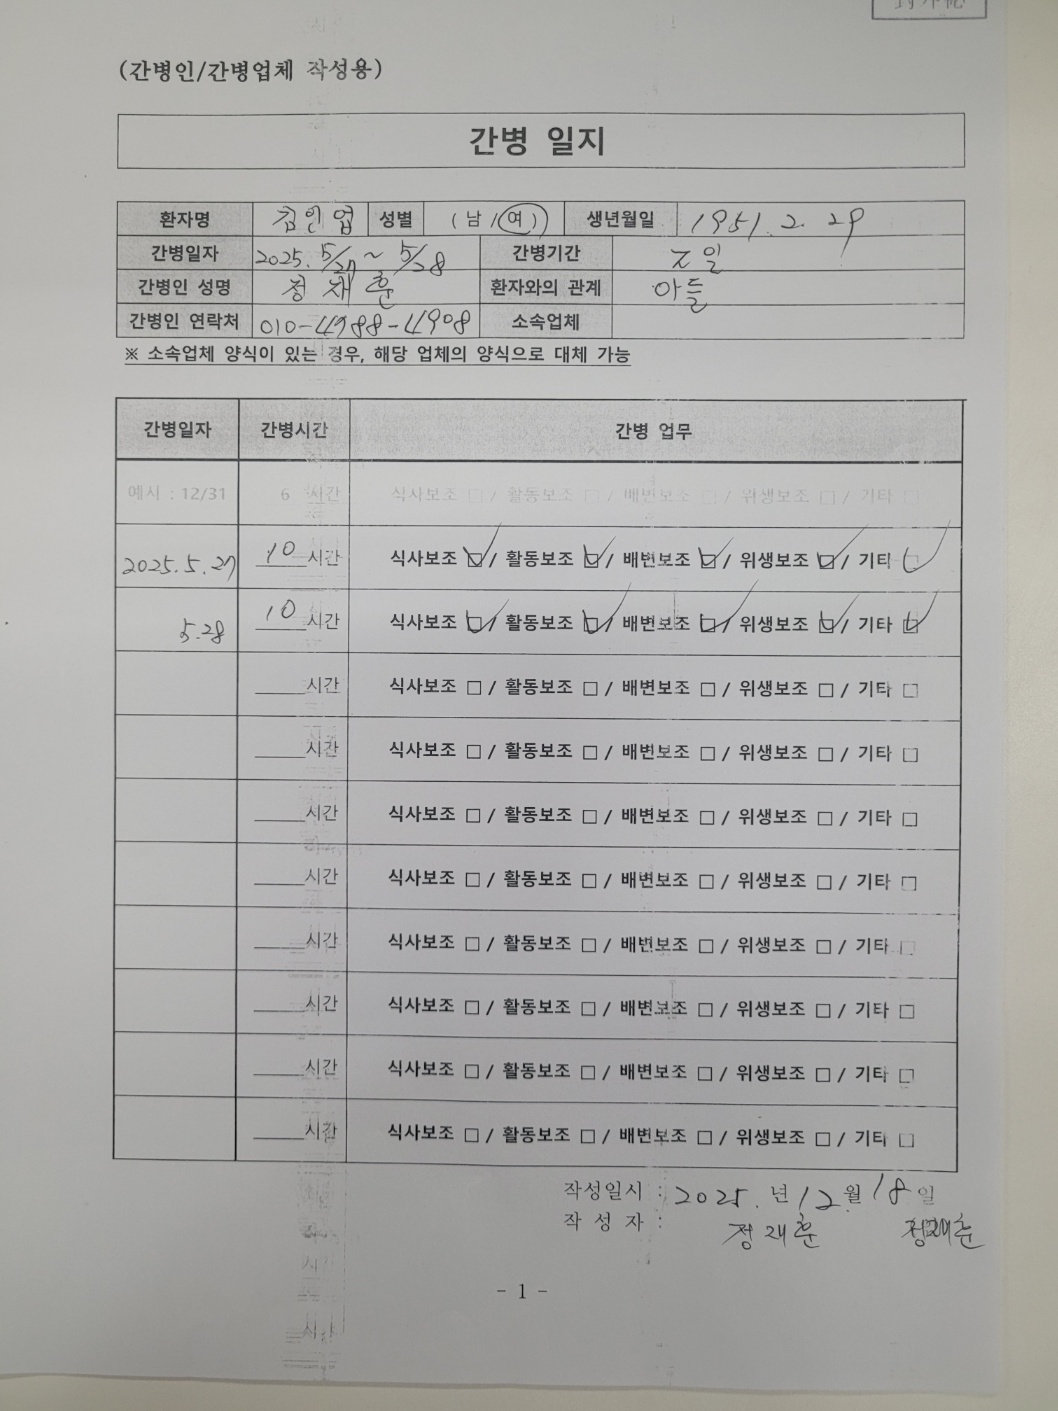 (간병인/간병업체 작성용)
간병 일지
환자명 김인엽 성별 ( 남 / 여 ) 생년월일 1951. 2. 29
간병일자 2025. 5/27 ~ 5/28 간병기간 일
간병인 성명 정재훈 환자와의 관계 아들
간병인 연락처 010-4988-4908 소속업체
※ 소속업체 양식이 있는 경우, 해당 업체의 양식으로 대체 가능
간병일자 간병시간 간병 업무
예시 : 12/31 6 시간 식사보조 □ / 활동보조 □ / 배변보조 □ / 위생보조 □ / 기타 □
2025.5.27 10 시간 식사보조 ☑ / 활동보조 ☑ / 배변보조 ☑ / 위생보조 ☑ / 기타 ☑
5.28 10 시간 식사보조 ☑ / 활동보조 ☑ / 배변보조 ☑ / 위생보조 ☑ / 기타 ☑
____시간 식사보조 □ / 활동보조 □ / 배변보조 □ / 위생보조 □ / 기타 □
____시간 식사보조 □ / 활동보조 □ / 배변보조 □ / 위생보조 □ / 기타 □
____시간 식사보조 □ / 활동보조 □ / 배변보조 □ / 위생보조 □ / 기타 □
____시간 식사보조 □ / 활동보조 □ / 배변보조 □ / 위생보조 □ / 기타 □
____시간 식사보조 □ / 활동보조 □ / 배변보조 □ / 위생보조 □ / 기타 □
____시간 식사보조 □ / 활동보조 □ / 배변보조 □ / 위생보조 □ / 기타 □
____시간 식사보조 □ / 활동보조 □ / 배변보조 □ / 위생보조 □ / 기타 □
____시간 식사보조 □ / 활동보조 □ / 배변보조 □ / 위생보조 □ / 기타 □
작성일시 : 2025. 년 12 월 18 일
작 성 자 : 정재훈 정재훈
- 1 -